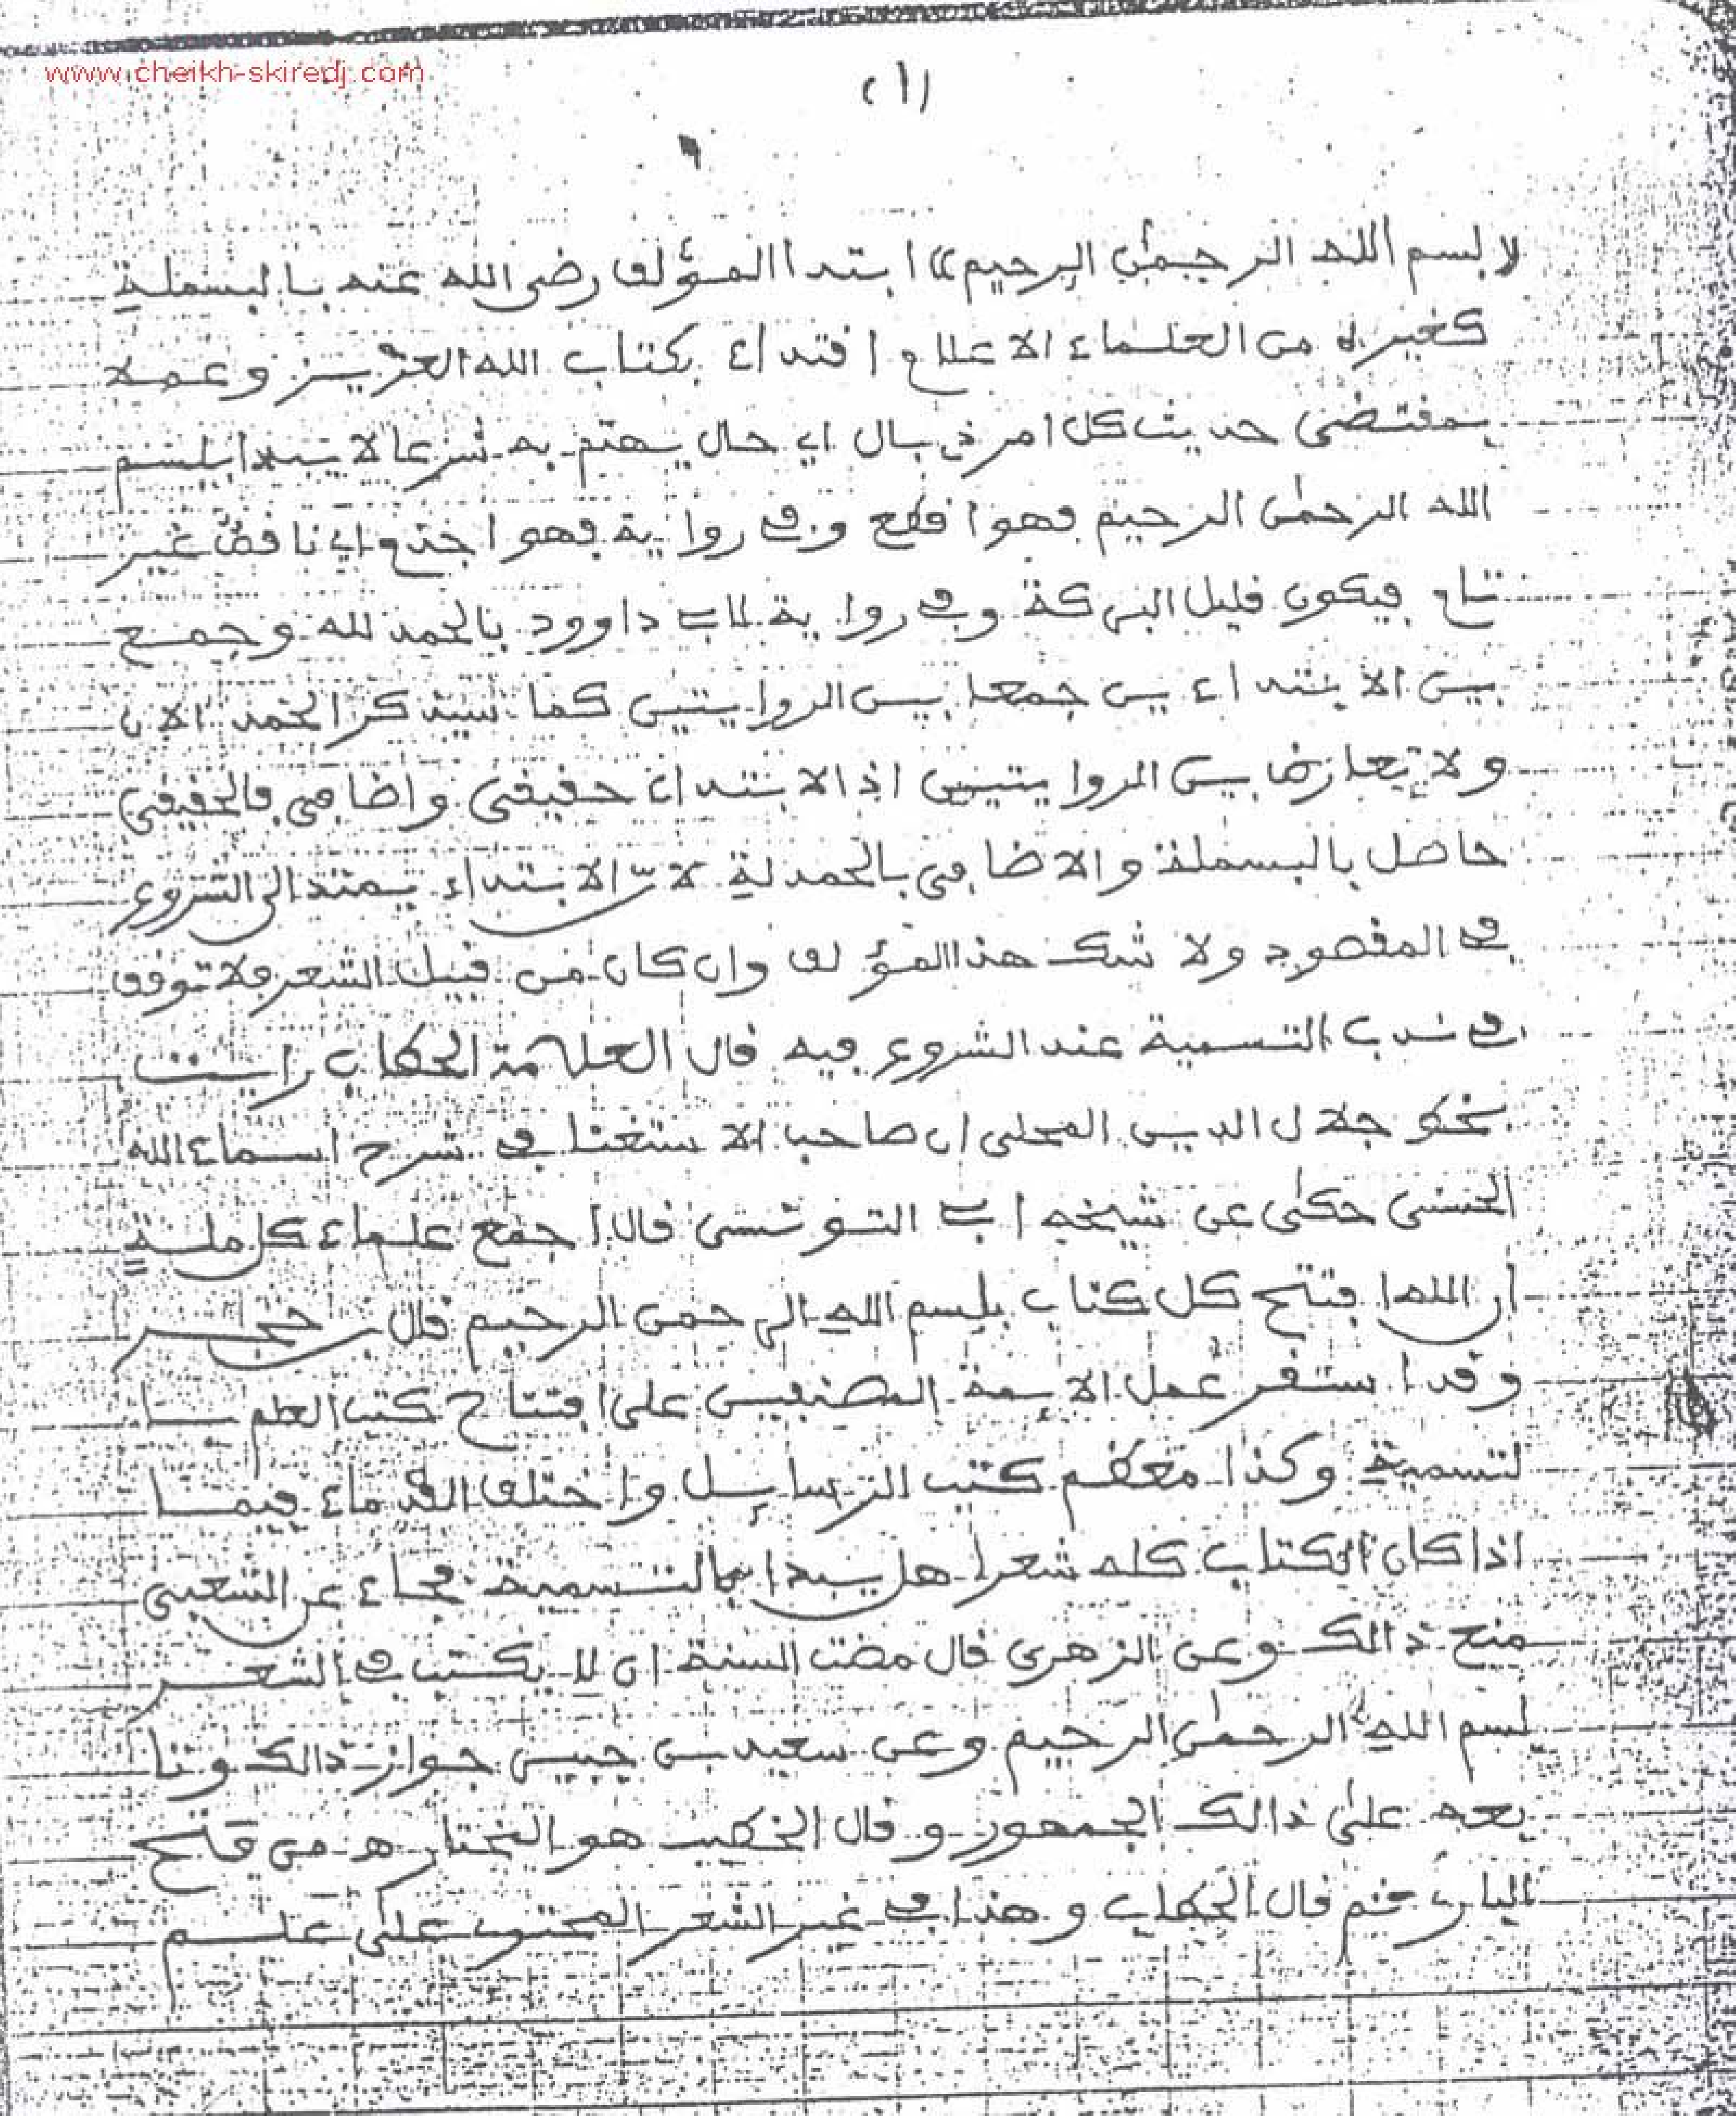 www.cheikh-skiredj.com
(١)
«بسم الله الرحمٰن الرحيم» ابتدا المؤلف رضي الله عنه بالبسملة
كغيره من العلماء الاعلام اقتداء بكتاب الله العزيز وعملا
بمقتضى حديث كل امر ذي بال اي حال يهتم به شرعا لا يبدا ببسم
الله الرحمٰن الرحيم فهو اقطع وفي رواية فهو اجذم اي ناقص غير
تام فيكون قليل البركة وفي رواية لابي داوود بالحمد لله وجمع
بين الابتداءين جمعا بين الروايتين كما سيذكر الحمد الان
ولا تعارض بين الروايتين اذ الابتداء حقيقي واضافي فالحقيقي
حاصل بالبسملة والاضافي بالحمدلة لانّ الابتداء يمتد الى الشروع
في المقصود ولا شك هذا المؤلف وان كان من قبيل الشعر فلا توقف
في ندب التسمية عند الشروع فيه قال العلامة الحطاب رايت
بخط جلال الدين المحلي ان صاحب الاستغنا في شرح اسماء الله
الحسنى حكى عن شيخه ابي التونسي قال اجمع علماء كل ملة
ان الله افتتح كل كتاب ببسم الله الرحمن الرحيم قال بن حجر
وقد استقر عمل الايمة المصنفين على افتتاح كتب العلم با
لتسمية وكذا معظم كتب الرسايل واختلف القدماء فيما
اذا كان الكتاب كله شعرا هل يبدا بالتسمية فجاء عن الشعبي
منع ذالك وعن الزهري قال مضت السنة ان لا يكتب في الشعر
بسم الله الرحمٰن الرحيم وعن سعيد بن جبير جواز ذالك وتا
بعه على ذالك الجمهور وقال الخطيب هو المختار ه من فتح
الباري ثم قال الحطاب وهذا في غير الشعر المحتوي على علم